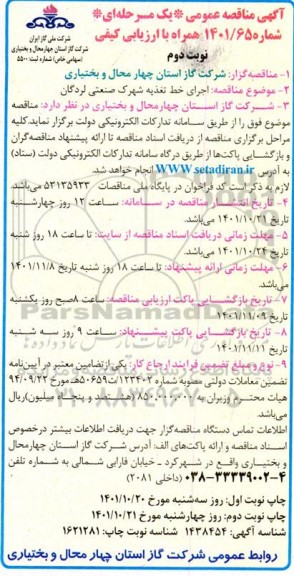 آگهی مناقصه عمومی *یک مرحله‌ای*
شماره ۱۴۰۱/۶۵ همراه با ارزیابی کیفی
نوبت دوم
شرکت ملی گاز ایران
شرکت گاز استان چهارمحال و بختیاری
(سهامی خاص) شماره ثبت: ۵۵۰۰
۱- مناقصه‌گزار: شرکت گاز استان چهار محال و بختیاری
۲- موضوع مناقصه: اجرای خط تغذیه شهرک صنعتی لردگان
۳- شــرکت گاز اســتان چهارمحال و بختیاری در نظر دارد: مناقصه
موضوع فوق را از طریق سامانه تدارکات الکترونیکی دولت برگزار نماید. کلیه
مراحل برگزاری مناقصه از دریافت اسناد مناقصه تا ارائه پیشنهاد مناقصه‌گران
و بازگشــایی پاکت‌ها از طریق درگاه سامانه تدارکات الکترونیکی دولت (ستاد)
به آدرس WWW.setadiran.ir انجام خواهد شد.
لازم به ذکر است کد فراخوان در پایگاه ملی مناقصات ۵۳۱۳۵۹۳۳ می‌باشد.
۴- تاریخ انتشــار مناقصه در ســامانه: ساعت ۱۲ روز چهارشنبه
تاریخ ۱۴۰۱/۱۰/۲۱ می‌باشد.
۵- مهلت زمانی دریافت اسناد مناقصه از سایت: تا ساعت ۱۸ روز شنبه
تاریخ ۱۴۰۱/۱۰/۲۴ می‌باشد.
۶- مهلت زمانی ارائه پیشنهاد: تا ساعت ۱۸ روز شنبه تاریخ ۱۴۰۱/۱۱/۸
می‌باشد.
۷- تاریخ بازگشــایی پاکت ارزیابی مناقصه: ساعت ۸صبح روز یکشنبه
تاریخ ۱۴۰۱/۱۱/۰۹ می‌باشد.
۸- تاریخ بازگشــایی پاکت پیشــنهاد: ساعت ۹ روز سه شــنبه
تاریخ ۱۴۰۱/۱۱/۱۱ می‌باشد.
۹- نوع و مبلغ تضمین فرایند ارجاع کار: یکی از تضامین معتبر در آیین‌نامه
تضمین معاملات دولتی مصوبه شماره ۱۲۳۴۰۲/ت۵۰۶۵۹هـ مورخ ۹۴/۰۹/۲۲
هیات محترم وزیران به مبلغ (هشتصد و پنجاه میلیون) ریال
می‌باشد.
اطلاعات تماس دستگاه مناقصه‌گزار جهت دریافت اطلاعات بیشتر درخصوص
اسناد مناقصه و ارائه پاکت‌های الف: آدرس شرکت گاز استان چهارمحال
و بختیاری واقع در شهرکرد - خیابان فارابی شمالی به شماره تلفن
۰۳۸-۳۳۳۳۹۰۰۲-۴ (داخلی ۲۰۸۱)
چاپ نوبت اول: روز سه‌شنبه مورخ ۱۴۰۱/۱۰/۲۰
چاپ نوبت دوم: روز چهارشنبه مورخ ۱۴۰۱/۱۰/۲۱
شناسه آگهی: ۱۴۳۸۴۵۴ شناسه نوبت چاپ: ۱۶۲۱۲۸۱
روابط عمومی شرکت گاز استان چهار محال و بختیاری